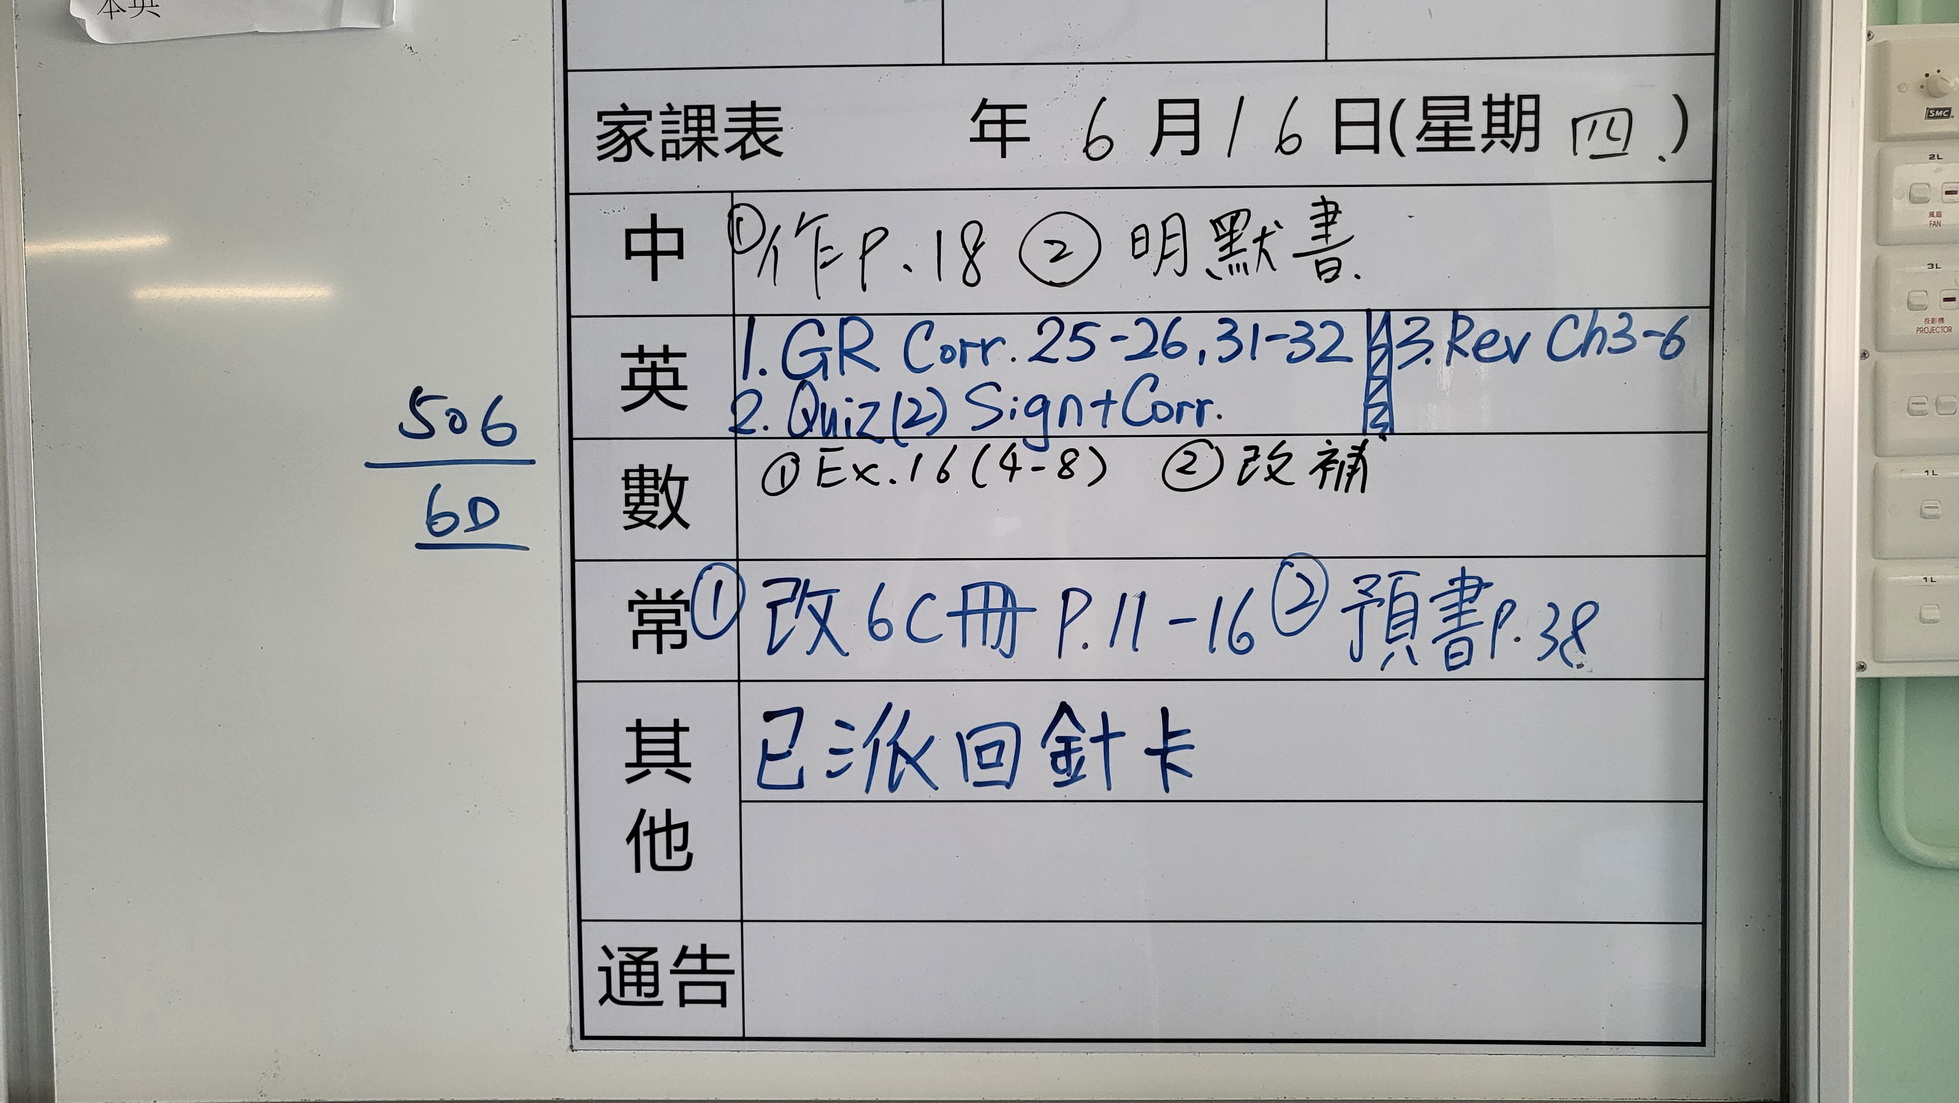 本英
家課表 年 6 月 16 日(星期 四.)
中 ①作P.18 ② 明默書.
英 1. GR Corr. 25-26, 31-32 3. Rev Ch3-6
2. Quiz(2) Sign+Corr.
506
6D
數 ①Ex.16(4-8) ②改補
常 ① 改6C冊 P.11-16 ② 預書P.38
其他 已派回針卡
通告
SMC
2L
風扇
FAN
3L
投影機
PROJECTOR
1L
1L